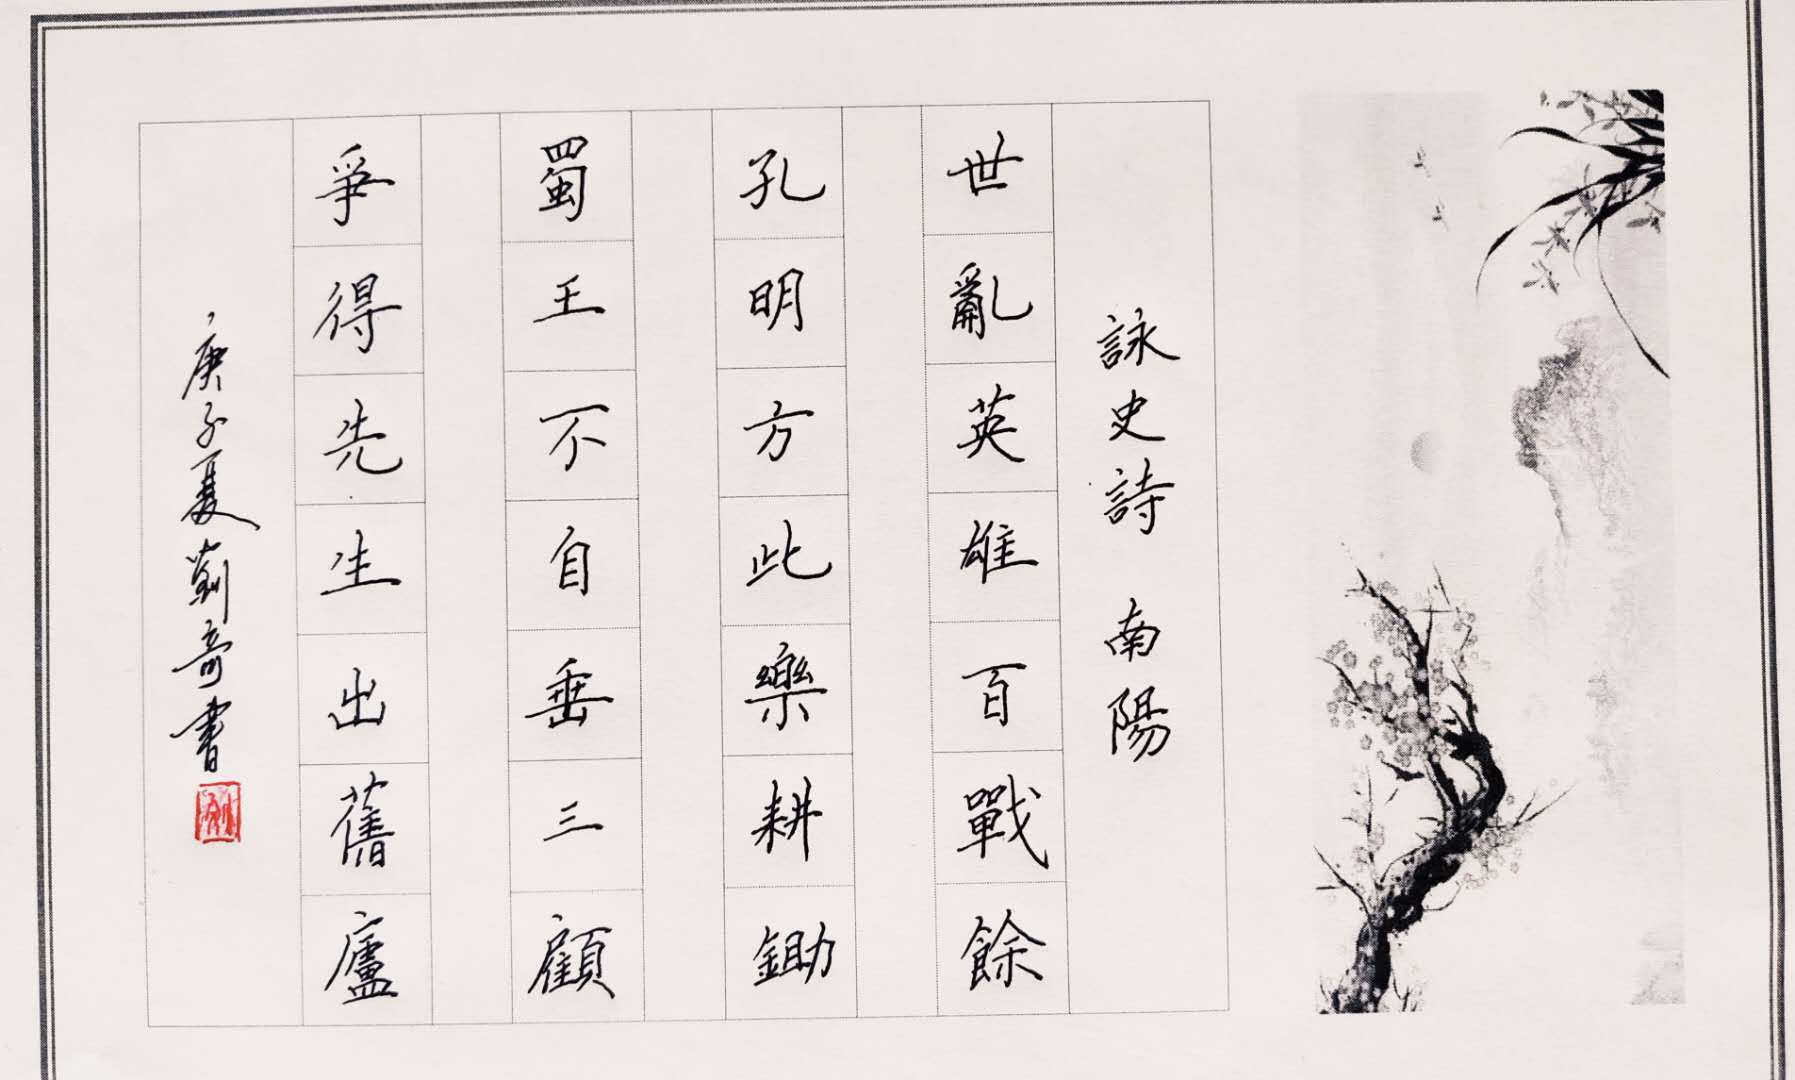 詠史詩 南陽
世亂英雄百戰餘
孔明方此樂耕鋤
蜀王不自垂三顧
爭得先生出舊廬
庚子夏劉奇書